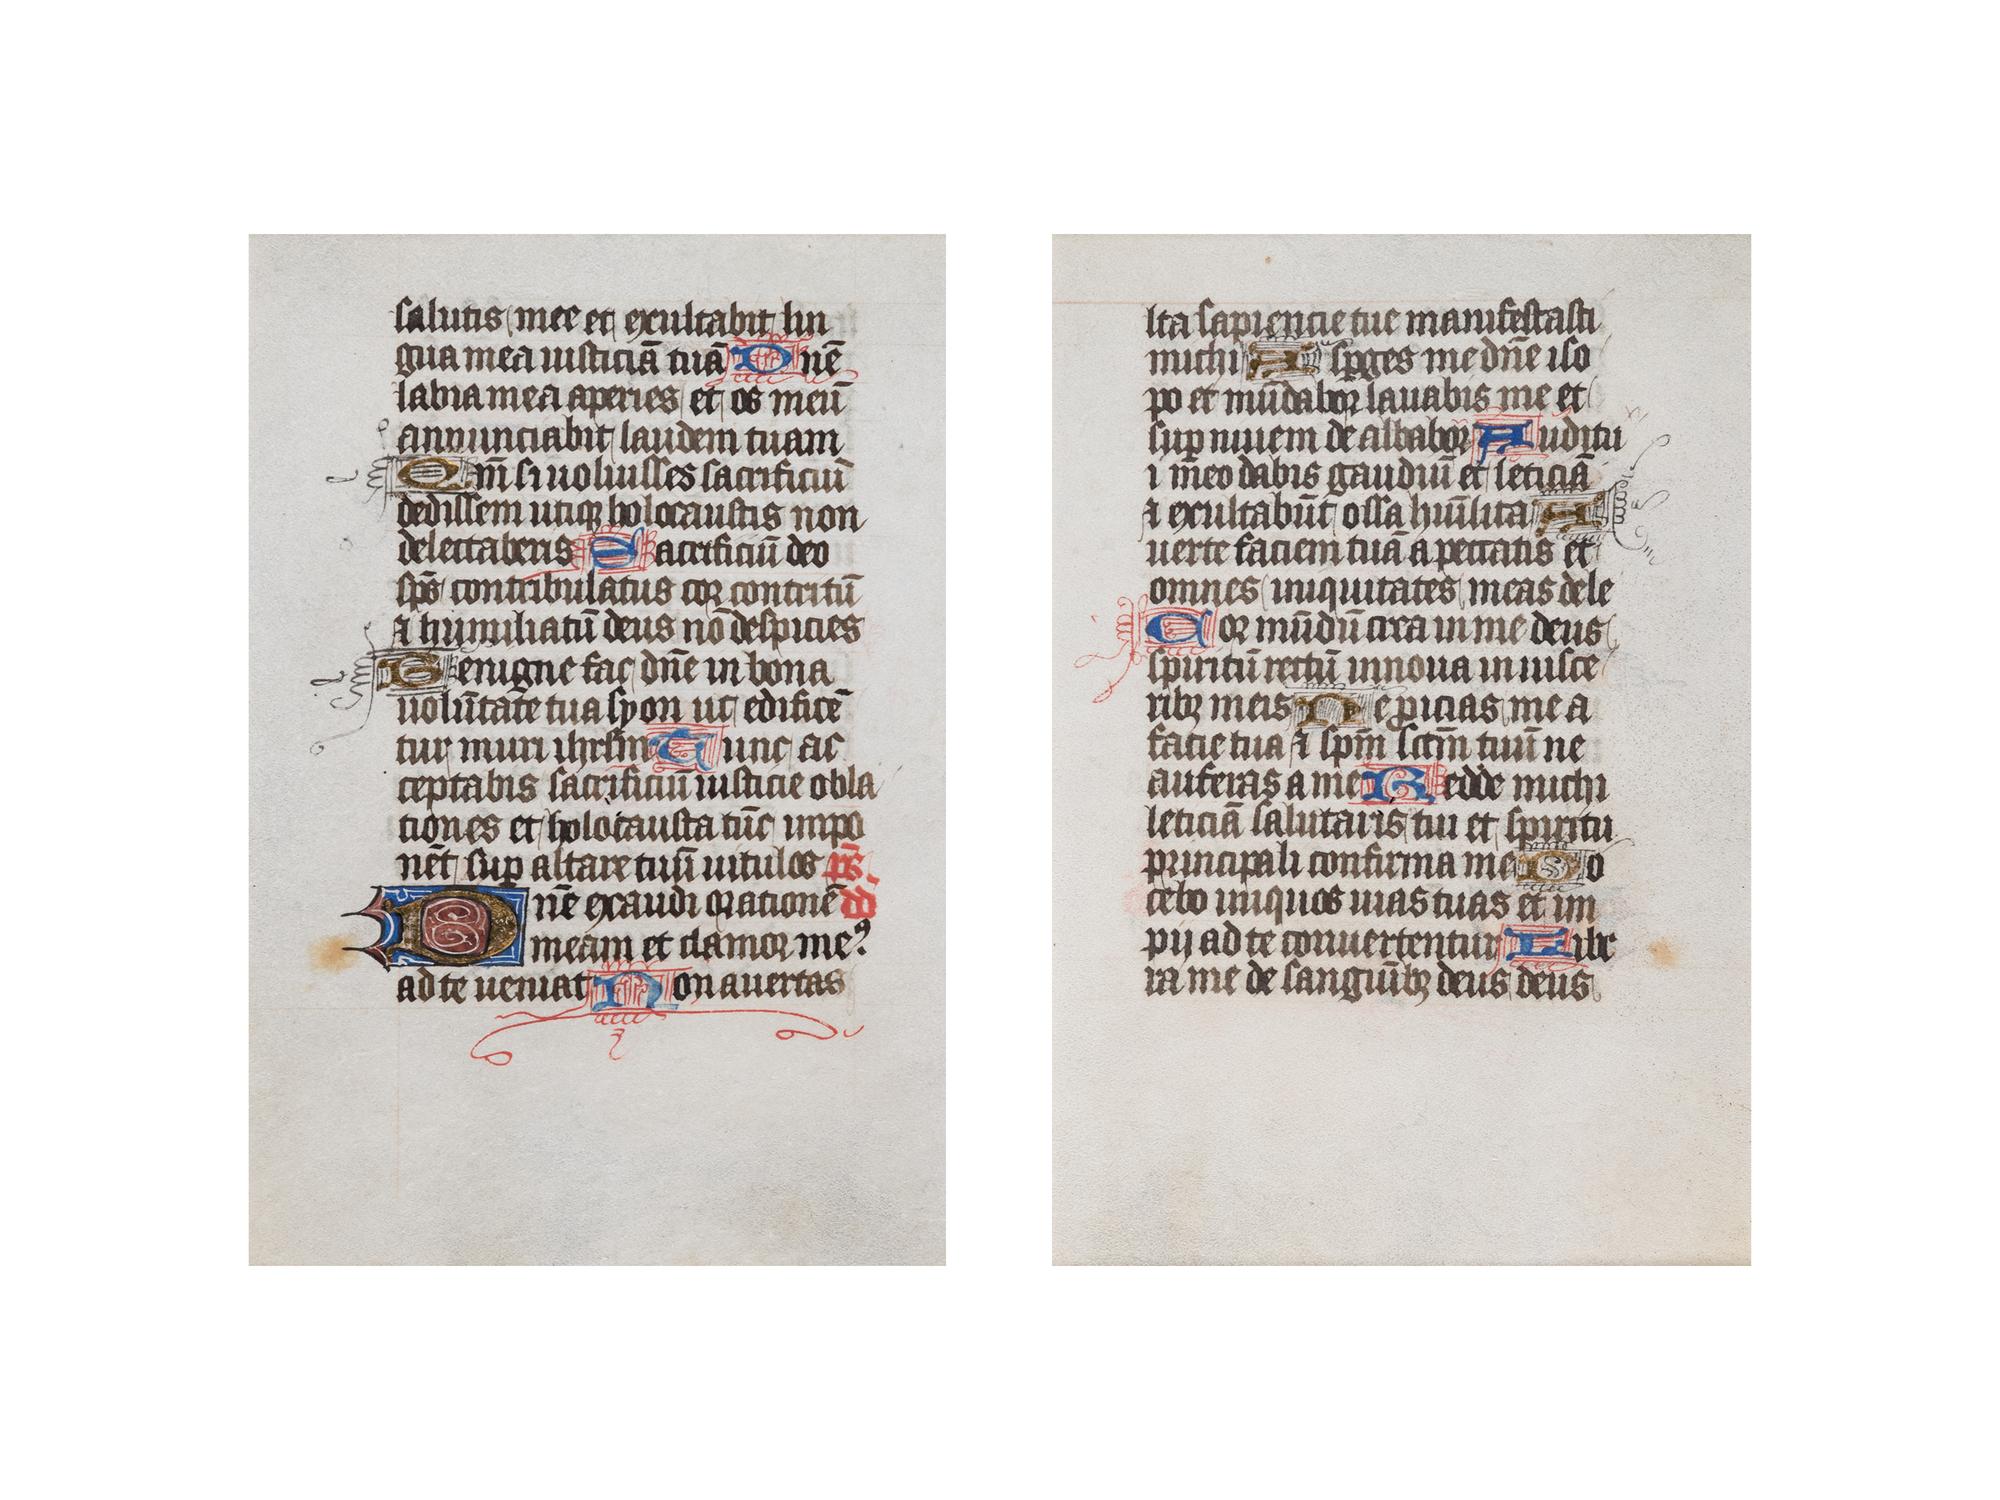 salutis mee et exultabit lin
gua mea iusticiā tuā Dnē
labia mea aperies et os meū
annunciabit laudem tuam
Qm̄ si uoluisses sacrificiū
dedissem utiqꝫ holocaustis non
delectaberis Sacrificiū deo
sp̄s contribulatus coꝛ contritū
⁊ humiliatū deus nō despicies
Benigne fac dn̄e in bona
uolūtate tua syon ut edificē
tur muri ihrlm̄ Tunc ac
ceptabis sacrificiū iusticie obla
tiones et holocausta tūc impo
nēt suꝑ altare tuū uitulos ps̄
Dnē exaudi oꝛationē d̄d
meam et clamoꝛ meꝰ
ad te ueniat Non auertas
lta sapiencie tue manifestasti
michi Asꝑges me dn̄e iso
po et mūdaboꝛ lauabis me et
suꝑ niuem de albaboꝛ Auditu
i meo dabis gaudiū et leticiā
⁊ exultabūt ossa hūilita A
uerte faciem tuā a peccatis et
omnes iniquitates meas dele
Coꝛ mūdū crea in me deus
spiritū rectū innoua in uisce
ribꝫ meis Ne ꝓicias me a
facie tua ⁊ spm̄ sctm̄ tuū ne
auferas a me Redde michi
leticiā salutaris tui et spiritu
principali confirma me Do
cebo iniquos uias tuas et im
pij ad te conuertentur Libe
ra me de sanguībꝫ deus deus